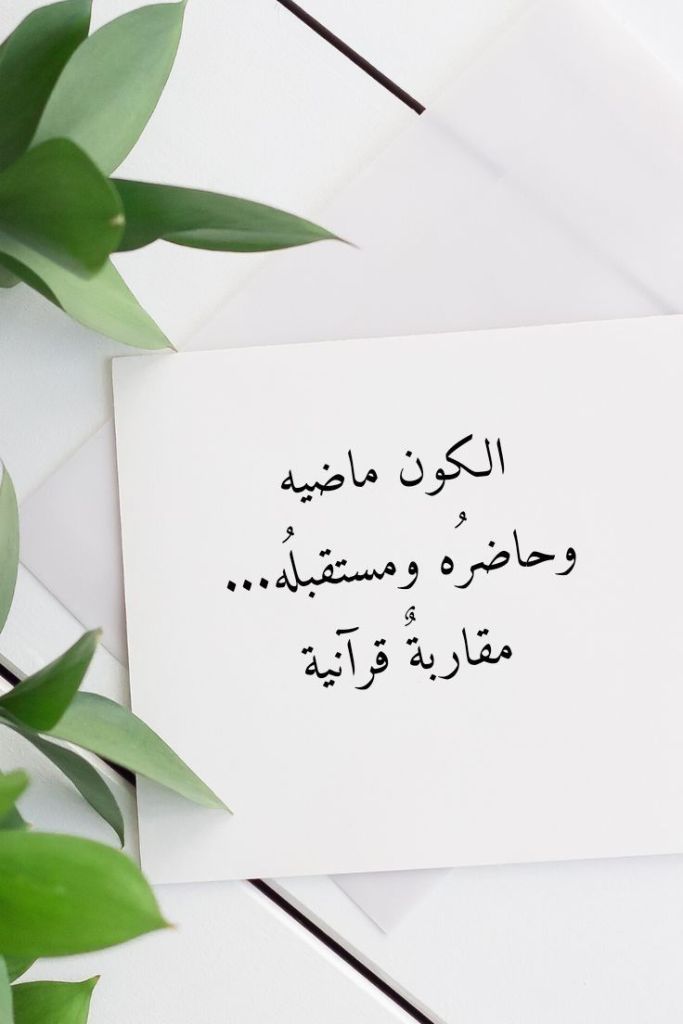 الكون ماضيه
وحاضرُه ومستقبلُه...
مقاربةٌ قرآنية